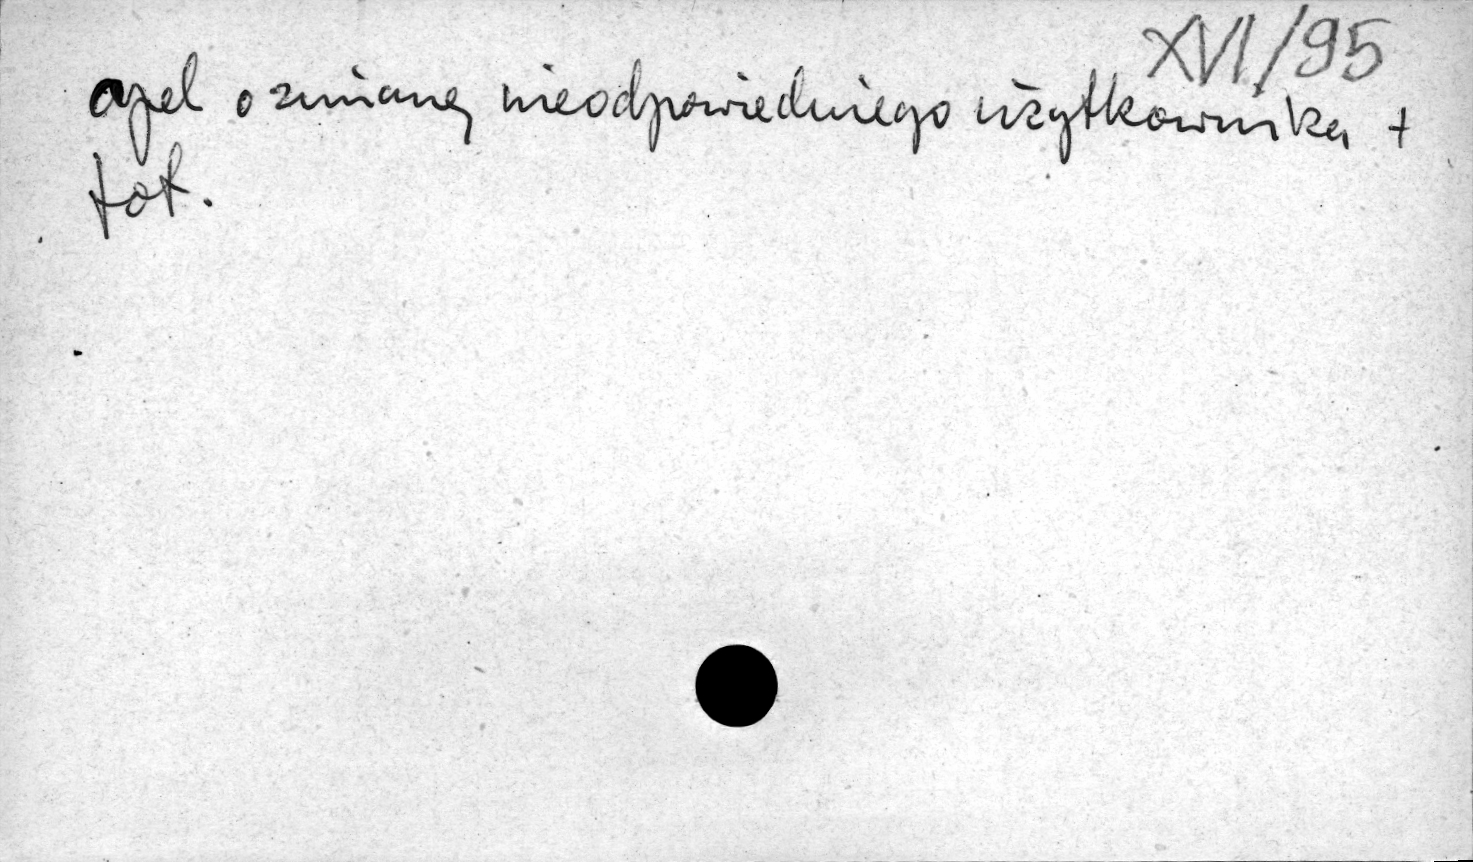 XVI/95
apel o zmianę nieodpowiedniego użytkownika +
fot.